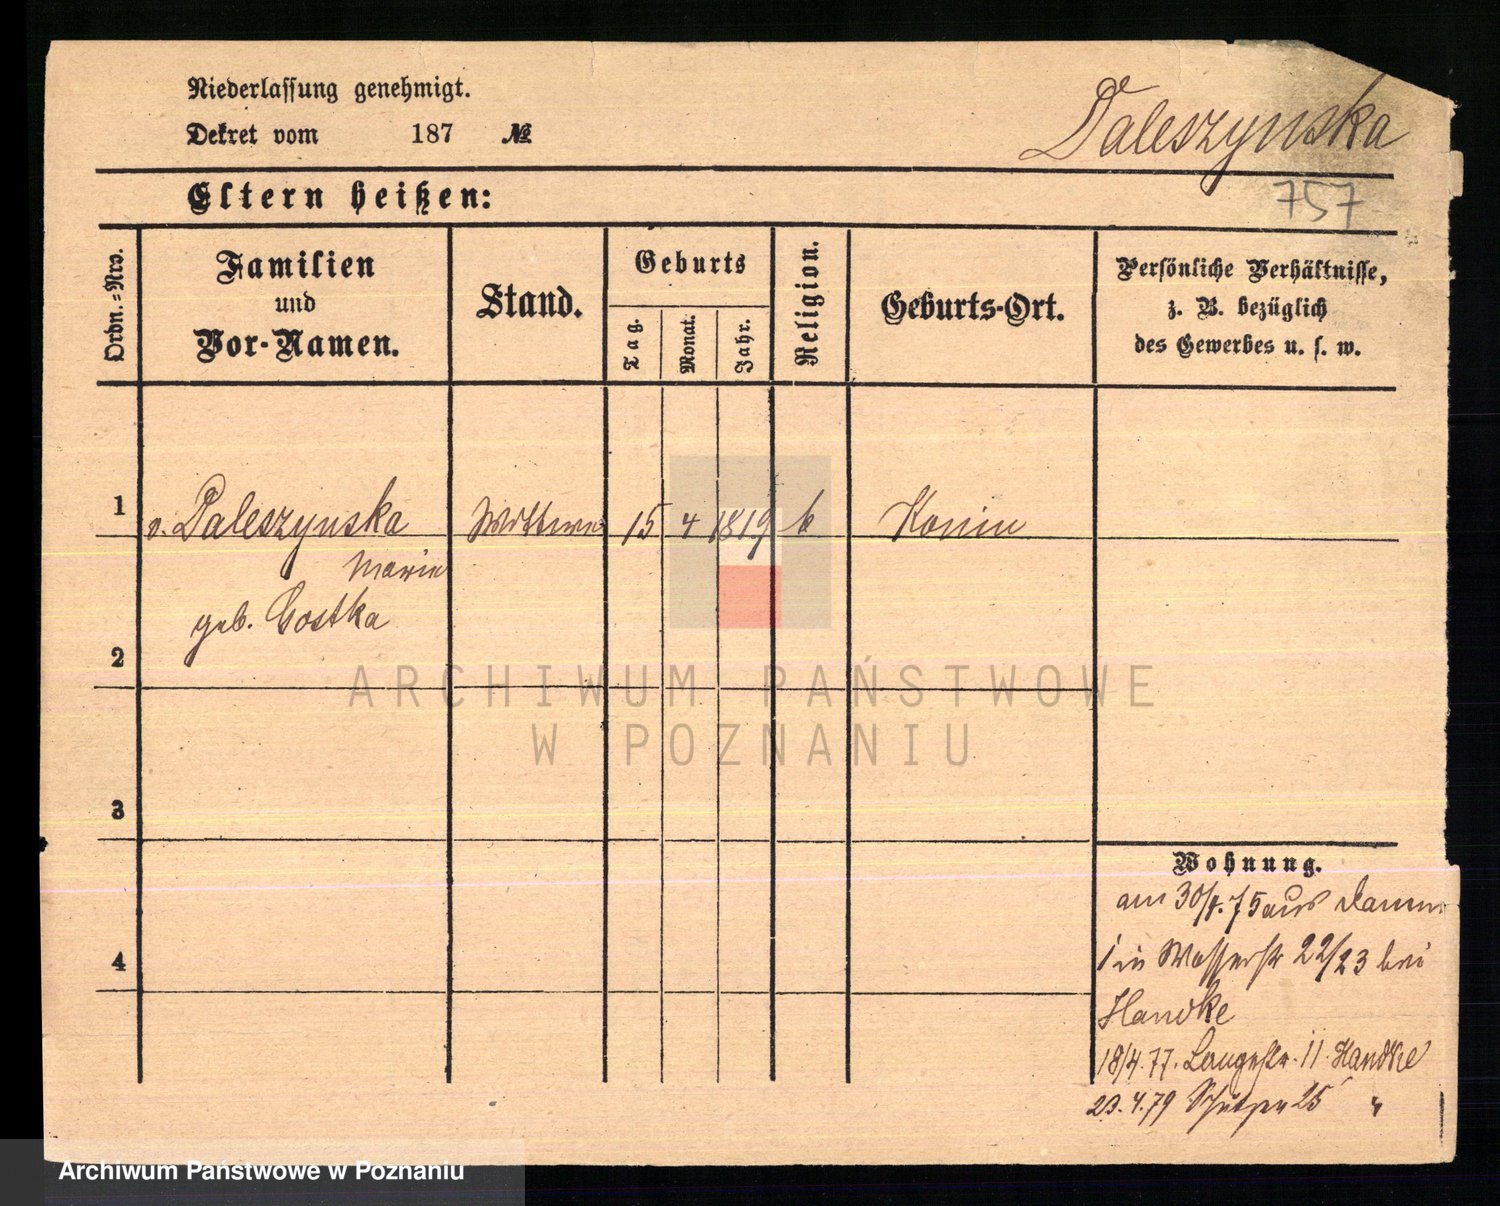 Niederlassung genehmigt.
Dekret vom 187 №
Daleszynska
757
Eltern heißen:
Ordn.=Nro.
Familien
und
Vor-Namen.
Stand.
Geburts
Tag.
Monat.
Jahr.
Religion.
Geburts-Ort.
Persönliche Verhältnisse,
z. B. bezüglich
des Gewerbes u. s. w.
1 v. Daleszynska Wittwe 15 4 1819 k Konin
Marie
geb. Gostka
2
3
4
Wohnung.
am 30/4.75 aus
in Wasserstr 22/23 bei
Handke
18/4.77. Langestr. 11. Handke
23.4.79 Schützen 25 "
ARCHIWUM PAŃSTWOWE
W POZNANIU
Archiwum Państwowe w Poznaniu